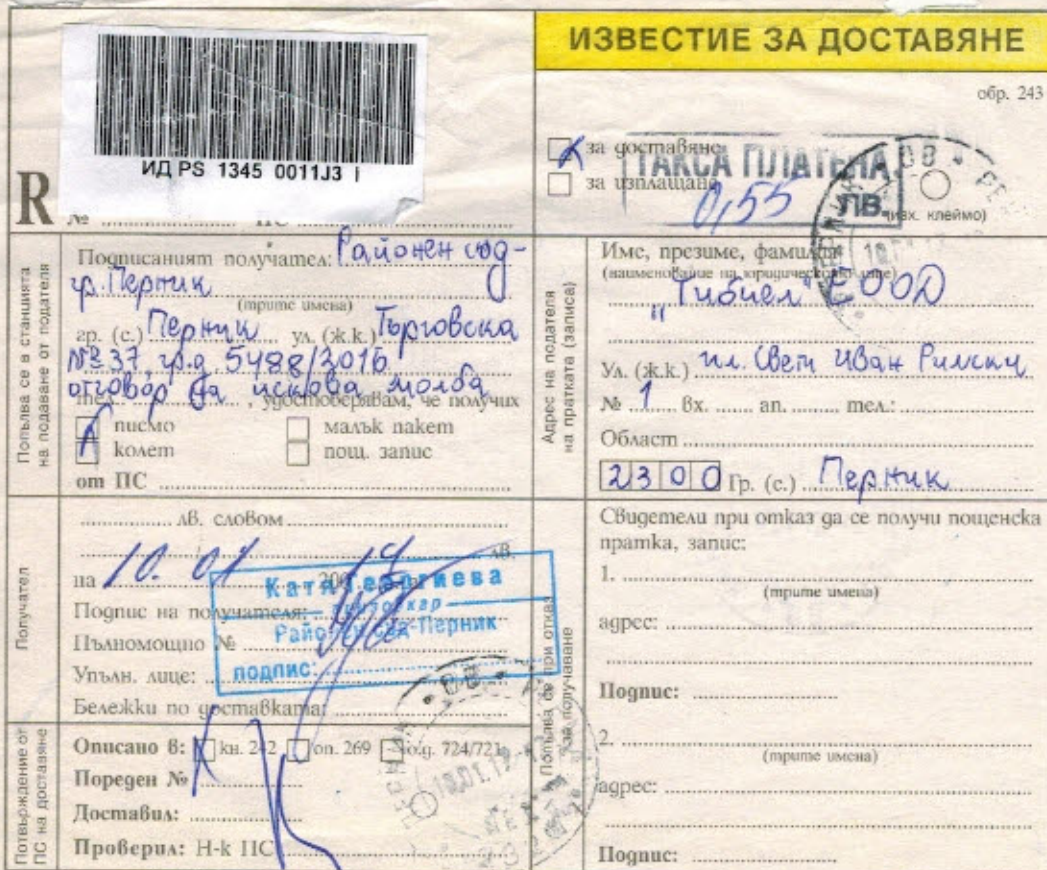 ИЗВЕСТИЕ ЗА ДОСТАВЯНЕ
обр. 243
ИД PS 1345 0011J3
R
№ ПС
за доставяне
за изплащане
ТАКСА ПЛАТЕНА
0,55 ЛВ.
(изх. клеймо)
Попълва се в станцията
на подаване от подателя
Подписаният получател: Районен съд-
гр. Перник
(трите имена)
гр. (с.) Перник ул. (ж.к.) Търговска
№ 37, гр.д. 5488/2016
отговор на искова молба
тел. , удостоверявам, че получих
писмо
малък пакет
колет
пощ. запис
от ПС
Адрес на подателя
на пратката (записа)
Име, презиме, фамилия
(наименование на юридическото лице)
"Тибиел" ЕООД
Ул. (ж.к.) пл. Свети Иван Рилски
№ 1 вх. ап. тел.:
Област
2300 Гр. (с.) Перник
Получател
лв. словом
лв.
на 10. 01 200
Подпис на получателя:
Пълномощно №
Упълн. лице:
Бележки по доставката:
Катя Георгиева
призовкар
Районен съд-Перник
подпис:
Попълва се при отказ
за получаване
Свидетели при отказ да се получи пощенска
пратка, запис:
1.
(трите имена)
адрес:
Подпис:
2.
(трите имена)
адрес:
Подпис:
Потвърждение от
ПС на доставяне
Описано в: кн. 242 оп. 269 724/721
Пореден №
Доставил:
Проверил: Н-к ПС
10.01.17